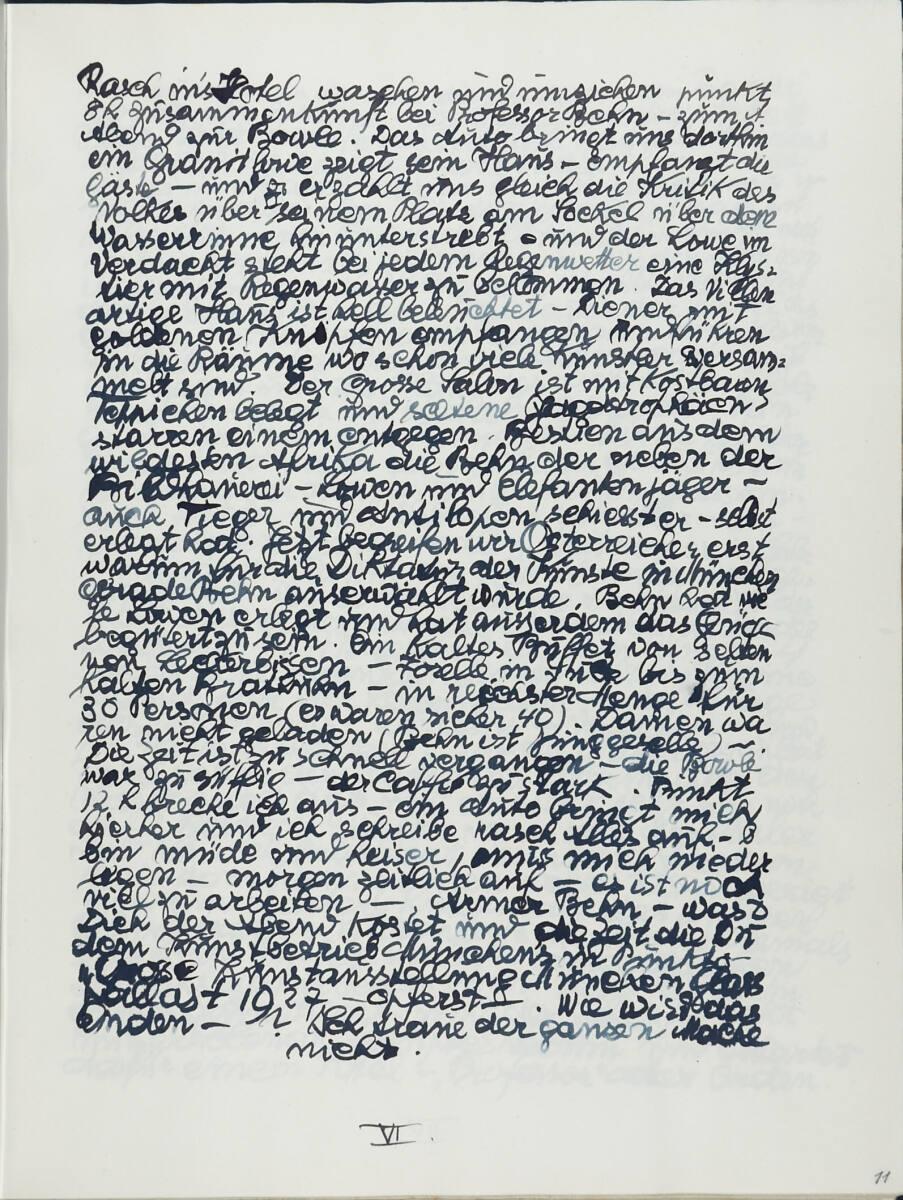 Rasch in's Hotel waschen und umziehen punkt
8h Zusammenkunft bei Professor Behn – zum
Abend zur Bowle. Das Auto bringt uns dorthin
ein Granitlöwe zeigt sein Haus – empfängt die
Gäste – und er erzählt uns gleich die Kritik des
Volkes über seinem Platz am Sockel über dem
Wasserrinne hinunterstrebt – und der Löwe im
Verdacht steht bei jedem Regenwetter eine Klys-
tier mit Regenwasser zu bekommen. Das Villen
artige Haus ist hell beleuchtet – Diener mit
goldenen Knöpfen empfangen und führen
in die Räume wo schon viele Künstler versam=
melt sind. Der grosse Salon ist mit kostbaren
Teppichen belegt und seltene Jagdtrophäen
starren einem entgegen. Bestien aus dem
wildesten Afrika die Behn der neben der
Bildhauerei – Löwen und Elefantenjäger –
auch Tieger und Antilopen schiesst er – selbst
erlegt hat. Jetzt begreifen wir Österreicher erst
warum für die Diktatur der Künste in München
gerade Behn auserwählt wurde. Behn hat
Löwen erlegt und hat ausserdem das Glück
begütert zu sein. Ein kaltes Büffet von selten
von Leckerbissen – Forelle in bis zum
kalten Truthan – in reichster Menge für
30 Personen (es waren sicher 40). Damen wa
ren nicht geladen (Behn ist Junggeselle) –
Die Zeit ist zu schnell vergangen – die Bowle
war zu süffig – der Caffee zu stark. Punkt
12 h breche ich aus – ein Auto bringt mich
hierher und ich schreibe rasch Alles auf –
bin müde und heiser, muss mich nieder
legen – morgen zeitlich auf – es ist noch
viel zu arbeiten – Armer Behn – was
Dich der Abend kostet und die Zeit die Du
dem Kunstbetrieb Münchens in Punkto
"Grosse Kunstausstellung München Glas
Pallast 1927 – opferst –. Wie wird das
enden – Ich traue der ganzen Mache
nicht.
VI.
11